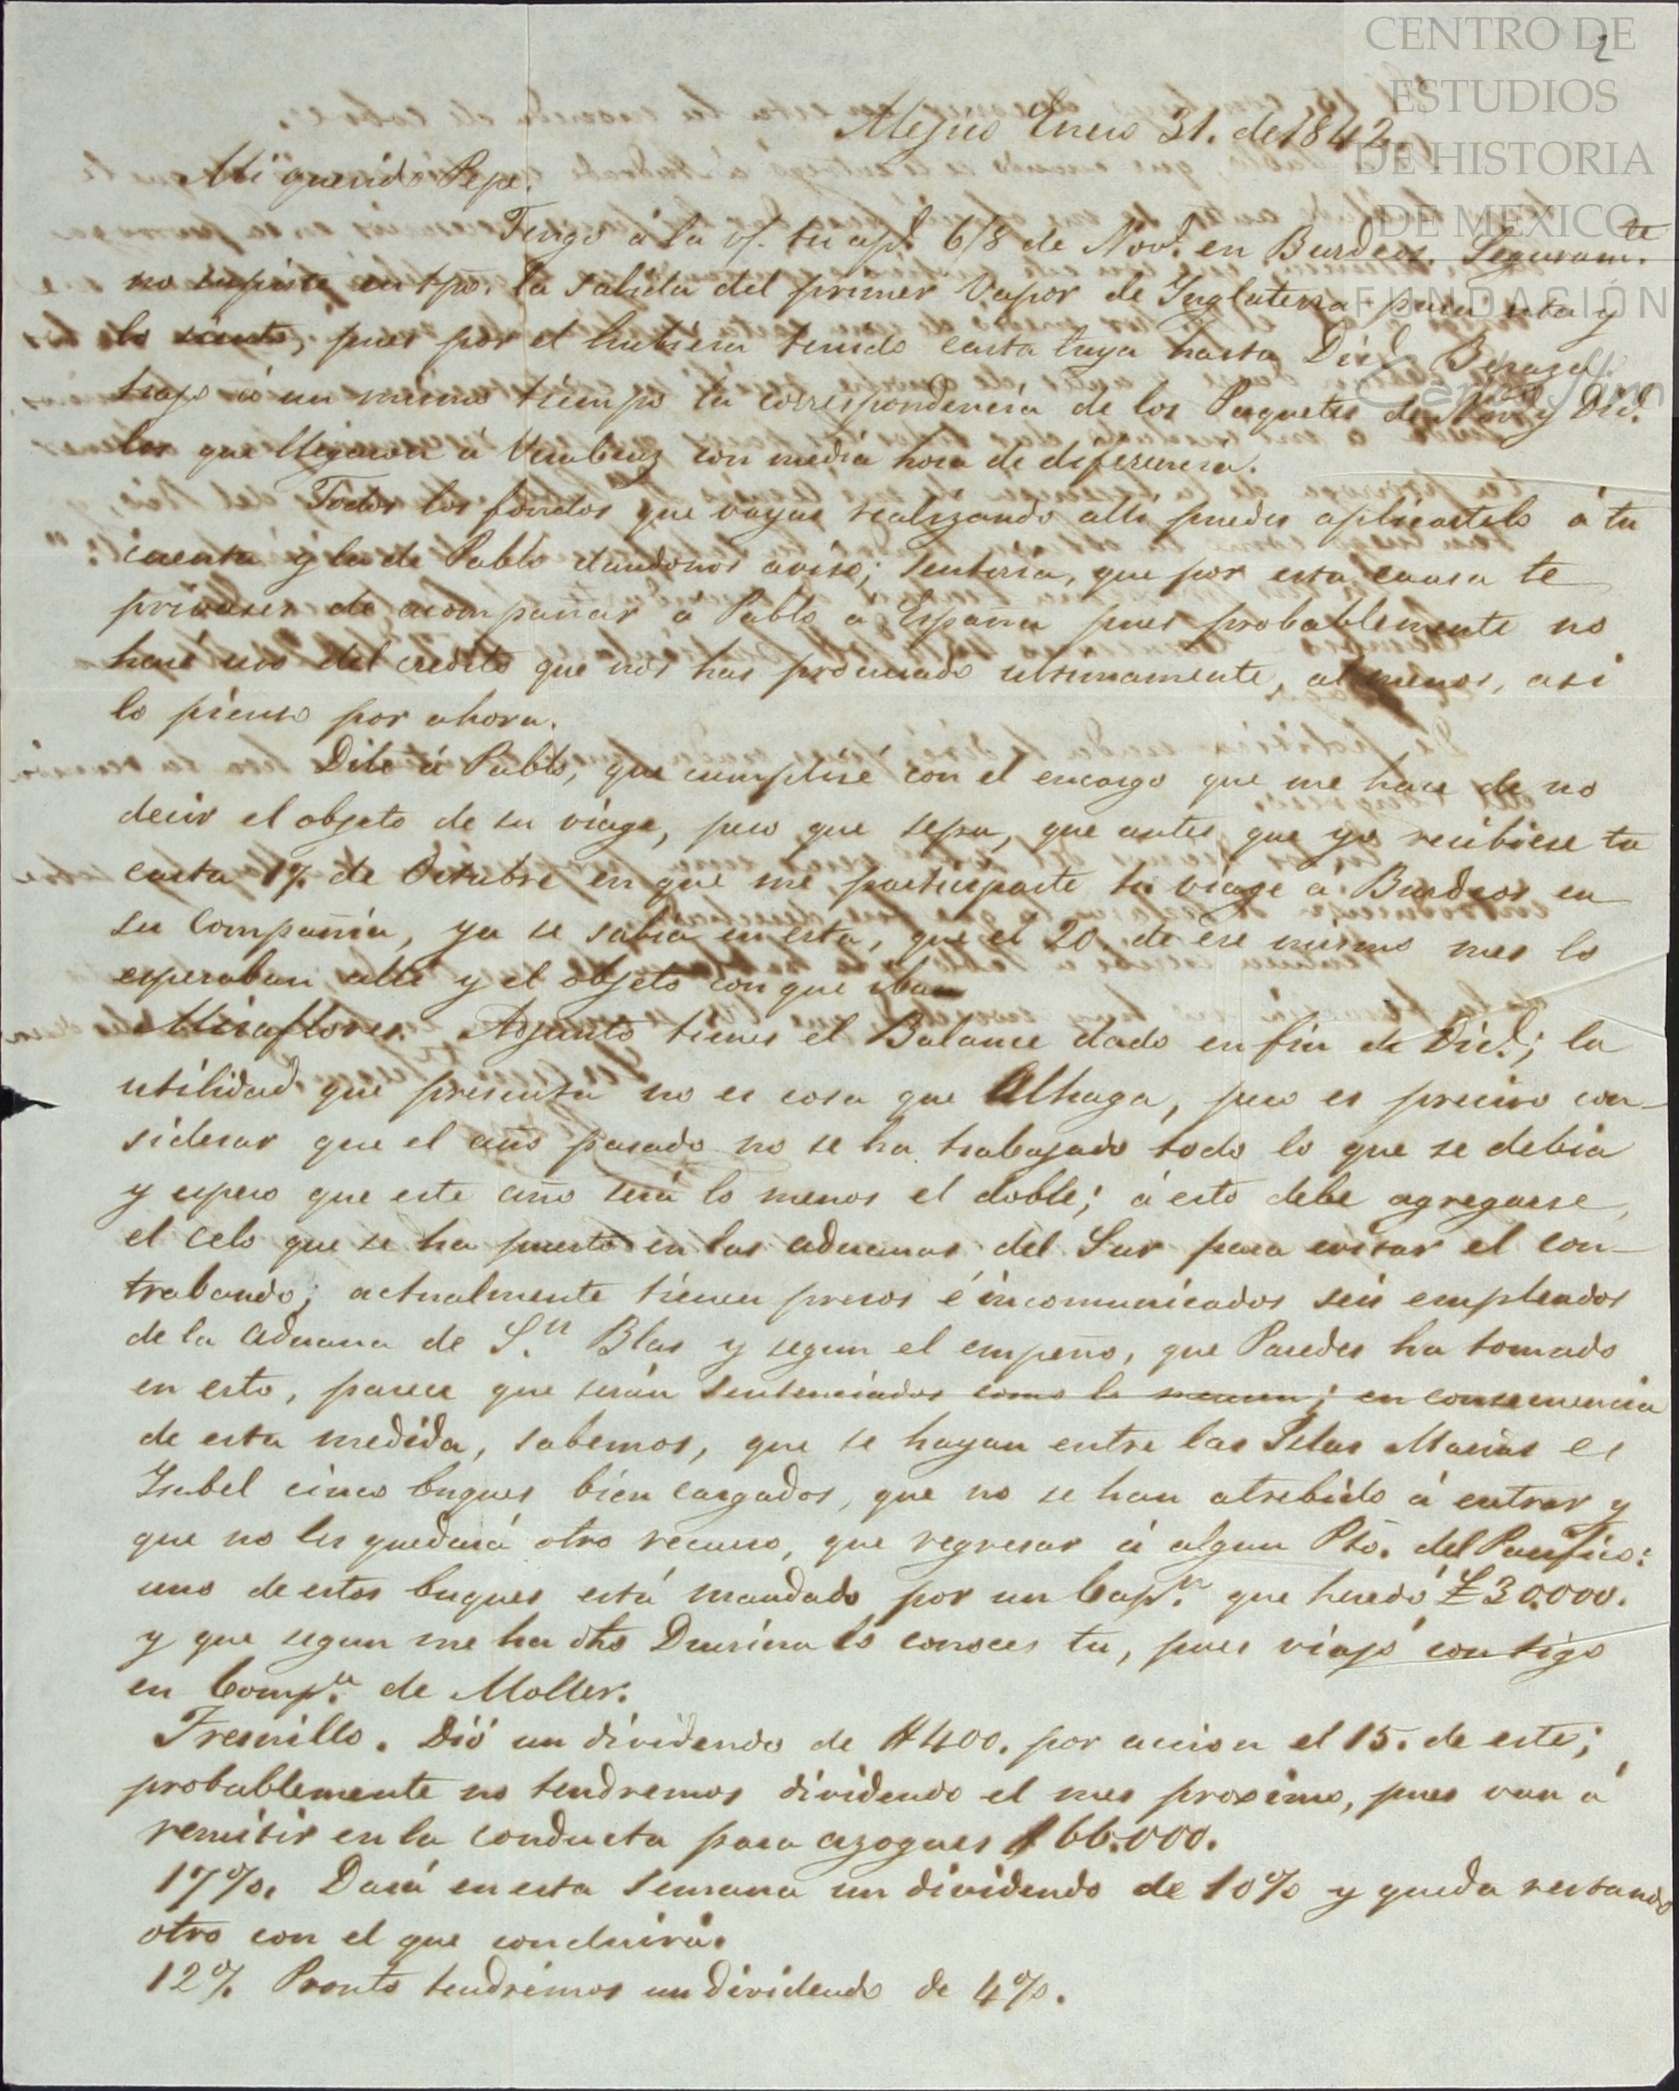 2
CENTRO DE
ESTUDIOS
DE HISTORIA
DE MEXICO
FUNDACIÓN
Carlos Slim
Mejico Enero 31. de 1842
Mi querido Pepe.
Tengo á la v/. tu ap.e 6/8 de Nov.e en Burdeos. Seguram.te
no supiste en tpo. la salida del primer Vapor de Inglaterra para esta y
lo siento, pues por el hubiera tenido carta tuya hasta Dic.e
trajo á un mismo tiempo la correspondencia de los Paquetes de Nov y Dic.e
los que llegaron á Veracruz con media hora de diferencia.
Todos los fondos que vayas realizando alli puedes aplicartelo á tu
cuenta y la de Pablo dandonos aviso; sentiria, que por esta causa te
privases de acompañar a Pablo a España pues probablemente no
haré uso del credito que nos has procurado ultimamente, al menos, asi
lo pienso por ahora.
Dile á Pablo, que cumpliré con el encargo que me hace de no
decir el objeto de su viage, pero que sepa, que antes que yo recibiese tu
carta 17. de Octubre en que me participaste tu viage á Burdeos en
su Compañia, ya se sabia en esta, que el 20. de ese mismo mes lo
esperaban alli y el objeto con que iban
Miraflores. Adjunto tienes el Balance dado en fin de Dic.e; la
utilidad que presenta no es cosa que Alhaga, pero es preciso con-
siderar que el año pasado no se ha trabajado todo lo que se debia
y espero que este año será lo menos el doble; á esto debe agregarse,
el celo que se ha puesto en las aduanas del Sur para evitar el con-
trabando; actualmente tienen presos é incomunicados seis empleados
de la Aduana de S.n Blas y segun el empeño, que Paredes ha tomado
en esto, parece que serán sentenciados como lo merecen; en consecuencia
de esta medida, sabemos, que se hayan entre las Islas Marias es
Isabel cinco buques bien cargados, que no se han atrebido á entrar y
que no les quedará otro recurso, que regresar á algun Pto. del Pacifico:
uno de estos buques está mandado por un Cap.n que heredó £30.000.
y que segun me ha dho Drusina lo conoces tu, pues viajó contigo
en Comp.a de Moller.
Fresnillo. Dió un dividendo de $400. por accion el 15. de este;
probablemente no tendremos dividendo el mes proximo, pues van á
remitir en la conducta para azogues $66.000.
17%. Dará en esta semana un dividendo de 10% y queda restando
otro con el que concluirá.
12% Pronto tendrémos un dividendo de 4%.